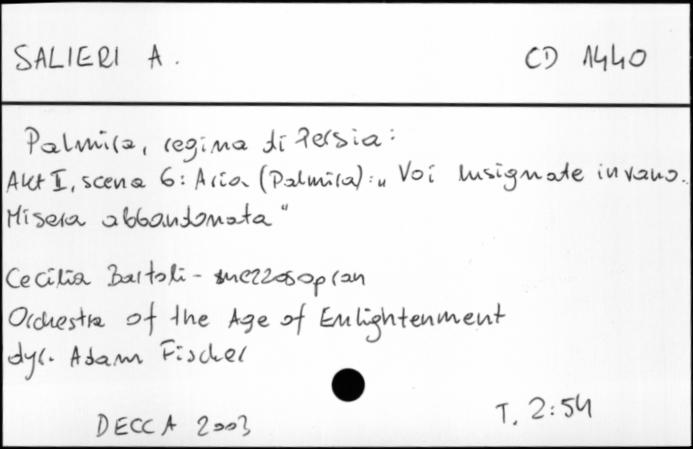 SALIERI A. CD 1440
Palmira, regina di Persia:
Akt I, scena 6: Aria (Palmira): „ Voi lusignate invano.
Misera abbandonata"
Cecilia Bartoli - mezzosopran
Orchestra of the Age of Enlightenment
dyr. Adam Fischer
DECCA 2003 T. 2:54